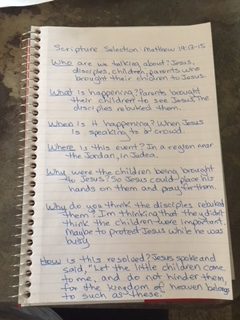 Scripture Selection: Matthew 19:13-15
Who are we talking about? Jesus,
disciples, children, parents who
brought their children to Jesus.
What is happening? Parents brought
their children to see Jesus. The
disciples rebuked them.
When is it happening? When Jesus
is speaking to a crowd.
Where is this event? In a region near
the Jordan, in Judea.
Why were the children being brought
to Jesus? So Jesus could place his
hands on them and pray for them.
Why do you think the disciples rebuked
them? I'm thinking that they didn't
think the children were important.
Maybe to protect Jesus while he was
busy.
How is this resolved? Jesus spoke and
said, "Let the little children come
to me, and do not hinder them,
for the kingdom of heaven belongs
to such as these."